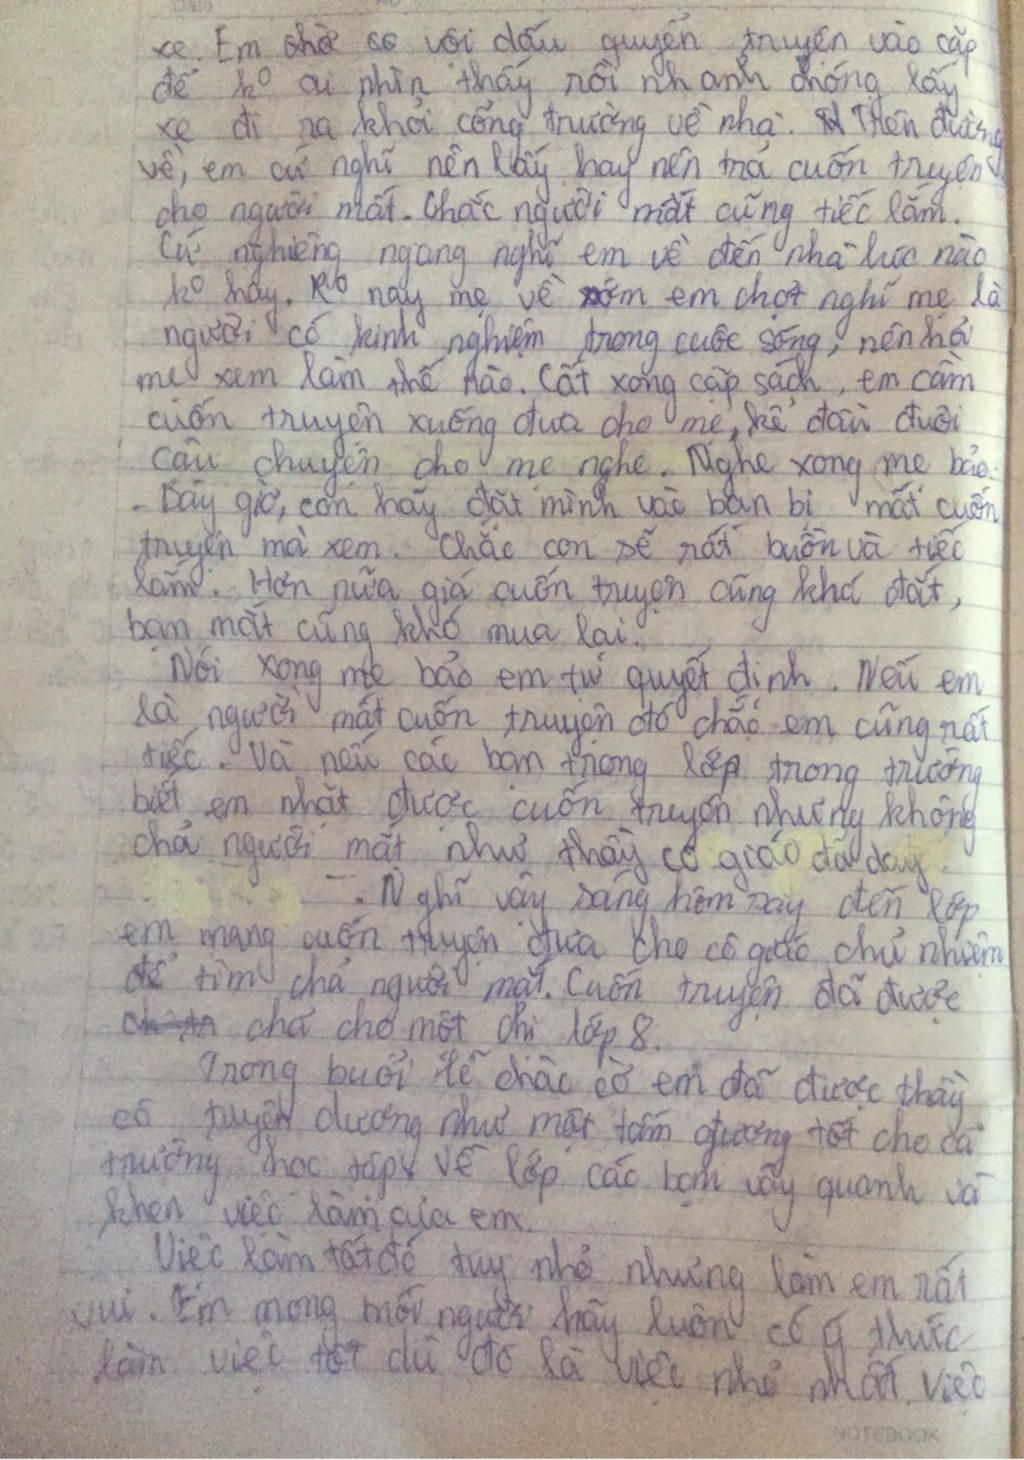 xe. Em vội dấu quyển truyện vào cặp
để k⁰ ai nhìn thấy rồi nhanh chóng lấy
xe đi ra khỏi cổng trường về nhà. Trên đường
về, em cứ nghĩ nên lấy hay nên trả cuốn truyện
cho người mất. Chắc người mất cũng tiếc lắm.
Cứ nghiêng ngang nghĩ em về đến nhà lúc nào
k⁰ hay. nay mẹ về sớm em chợt nghĩ mẹ là
người có kinh nghiệm trong cuộc sống, nên hỏi
mẹ xem làm thế nào. Cất xong cặp sách, em cầm
cuốn truyện xuống đưa cho mẹ, kể đầu đuôi
câu chuyện cho mẹ nghe. Nghe xong mẹ bảo.
- Bây giờ, con hãy đặt mình vào bạn bị mất cuốn
truyện mà xem. Chắc con sẽ rất buồn và tiếc
lắm. Hơn nữa giá cuốn truyện cũng khá đắt,
bạn mất cũng khó mua lại.
Nói xong mẹ bảo em tự quyết định. Nếu em
là người mất cuốn truyện đó chắc em cũng rất
tiếc. Và nếu các bạn trong lớp trong trường
biết em nhặt được cuốn truyện nhưng không
chả người mất như thầy cô giáo đã dạy.
. Nghĩ vậy sáng hôm say đến lớp
em mang cuốn truyện đưa cho cô giáo chủ nhiệm
để tìm chả người mất. Cuốn truyện đã được
chả cho một chị lớp 8.
Trong buổi lễ chào cờ em đã được thầy
cô tuyên dương như một tấm gương tốt cho cả
trường học tập. Về lớp các bạn vây quanh và
khen việc làm của em.
Việc làm tốt đó tuy nhỏ nhưng làm em rất
vui. Em mong mọi người hãy luôn có ý thức
làm việc tốt dù đó là việc nhỏ nhất. Việc
NOTEBOOK